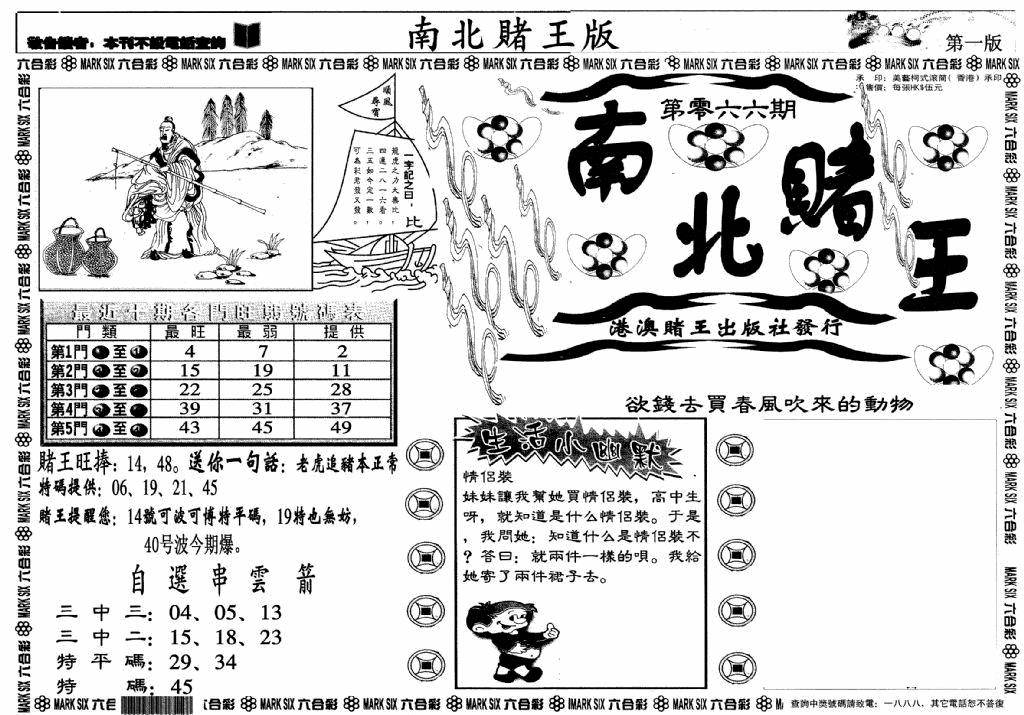 敬告讀者：本刊不設電話查詢
南北賭王版
第一版
六合彩 MARK SIX 六合彩 MARK SIX 六合彩 MARK SIX 六合彩 MARK SIX 六合彩 MARK SIX 六合彩 MARK SIX 六合彩 MARK SIX 六合彩 MARK SIX 六合彩 MARK SIX 六合彩 MARK SIX
承 印：美藝柯式滾筒(香港)承印
售價：每張HK$伍元
第零六六期
南北賭王
港澳賭王出版社發行
順風尋寶
一字記之曰：比
龍虎之力大無比，
四通二八一六看。
三五如今定一數，
可為彩君發又發。
最近十期各門旺弱號碼表
門類 最旺 最弱 提供
第1門 至 4 7 2
第2門 至 15 19 11
第3門 至 22 25 28
第4門 至 39 31 37
第5門 至 43 45 49
賭王旺捧：14，48。送你一句話：老虎追豬本正常
特碼提供：06、19、21、45
賭王提醒您：14號可波可博特平碼，19特也無妨，
40号波今期爆。
自選串雲箭
三中三：04、05、13
三中二：15、18、23
特平碼：29、34
特碼：45
欲錢去買春風吹來的動物
生活小幽默
情侶裝
妹妹讓我幫她買情侶裝，高中生
呀，就知道是什么情侶裝。于是
，我問她：知道什么是情侶裝不
？答曰：就兩件一樣的唄。我給
她寄了兩件裙子去。
查詢中獎號碼請致電：一八八八，其它電話恕不答復